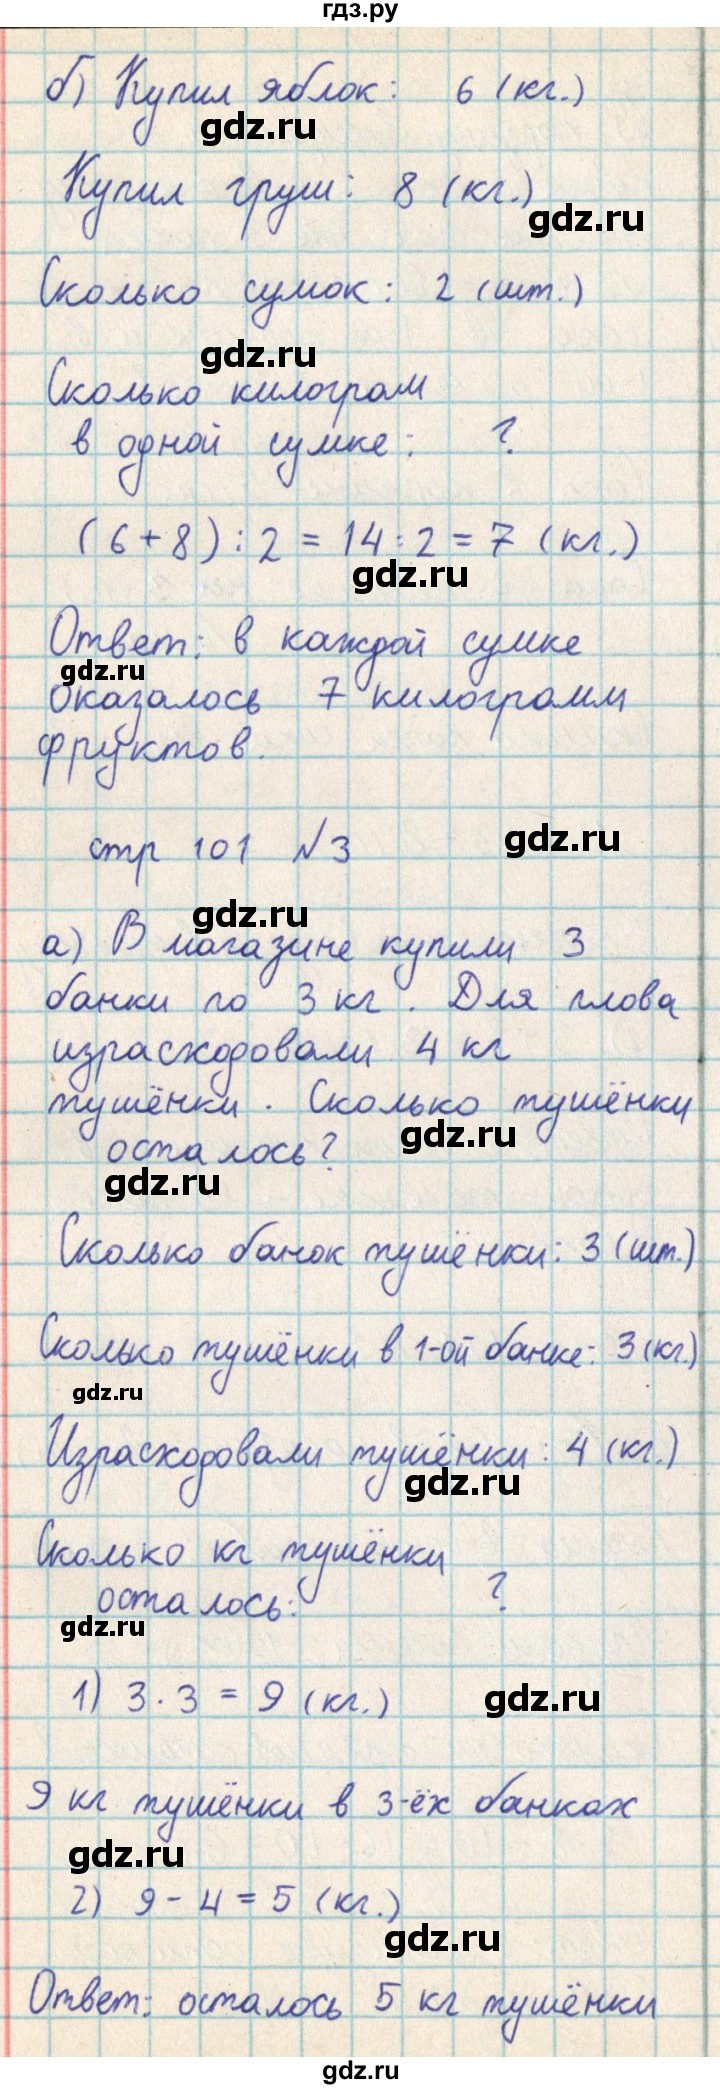 гдз.ру
б) Купил яблок: 6 (кг.)
gdz.ru
Купил груш: 8 (кг.)
gdz.ru
Сколько сумок: 2 (шт.)
gdz.ru
Сколько килограм
в одной сумке: ?
(6+8):2=14:2=7 (кг.)
gdz.ru
Ответ: в каждой сумке
gdz.ru
оказалось 7 килограмм
фруктов.
стр 101 №3
gdz.ru
gdz.ru
а) В магазине купили 3
банки по 3 кг. Для плова
израсходовали 4 кг
тушёнки. Сколько тушёнки
gdz.ru
осталось?
gdz.ru
Сколько банок тушёнки: 3 (шт.)
Сколько тушёнки в 1-ой банке: 3 (кг.)
gdz.ru
Израсходовали тушёнки: 4 (кг.)
gdz.ru
Сколько кг тушёнки
осталось: ?
gdz.ru
1) 3·3=9 (кг.)
gdz.ru
9 кг тушёнки в 3-ёх банках
gdz.ru
2) 9-4=5 (кг.)
gdz.ru
Ответ: осталось 5 кг тушёнки
gdz.ru